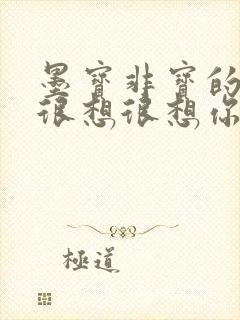 墨寶非寶的
很想很想你
極道